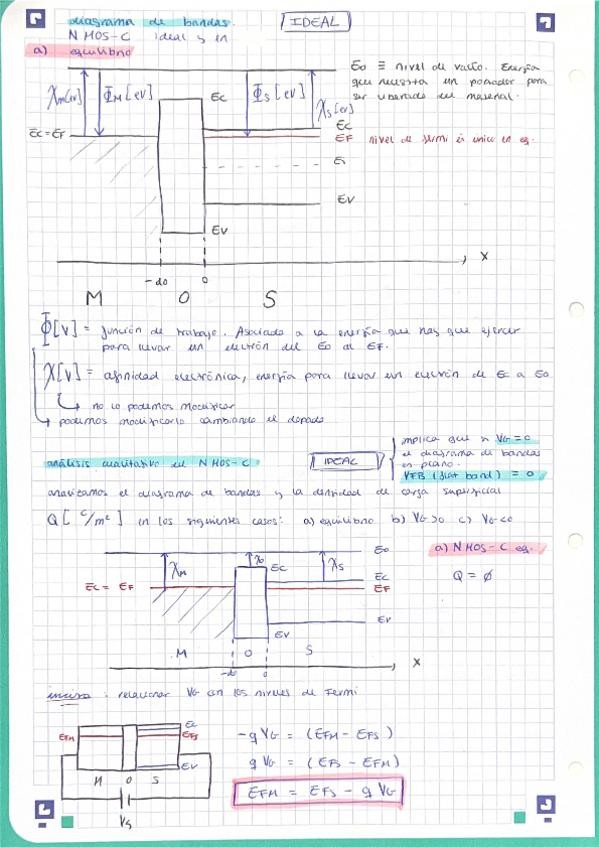 diagrama de bandas.
NMOS-C ideal y en
a) equilibrio
IDEAL
E0 ≡ nivel de vacío. Energía
que necesita un portador para
ser liberado del material.
χm[eV] ΦM[eV] EC ΦS[eV] χS[eV]
EC
EC=EF EF nivel de fermi es único en eq.
Ei
EV
EV
-d0 0 x
M O S
Φ[V] = función de trabajo. Asociada a la energía que hay que ejercer
para llevar un electrón del E0 al EF.
χ[V] = afinidad electrónica, energía para llevar un electrón de EC a E0
no lo podemos modificar
podemos modificarlo cambiando el dopado
análisis cualitativo del NMOS-C
IDEAL
implica que si VG=0
el diagrama de bandas
es plano.
VFB (flat band) = 0
analizamos el diagrama de bandas y la densidad de carga superficial
Q [C/m²] en los siguientes casos: a) equilibrio b) VG>0 c) VG<0
E0
a) NMOS-C eq.
χm χ0 EC χS
EC
EC = EF EF
Q = ∅
EV
EV
M O S
-d0 0 x
inciso: relacionar VG con los niveles de Fermi
EC
EFM EFS
EV
M O S
VG
-q VG = (EFM - EFS)
q VG = (EFS - EFM)
EFM = EFS - q VG